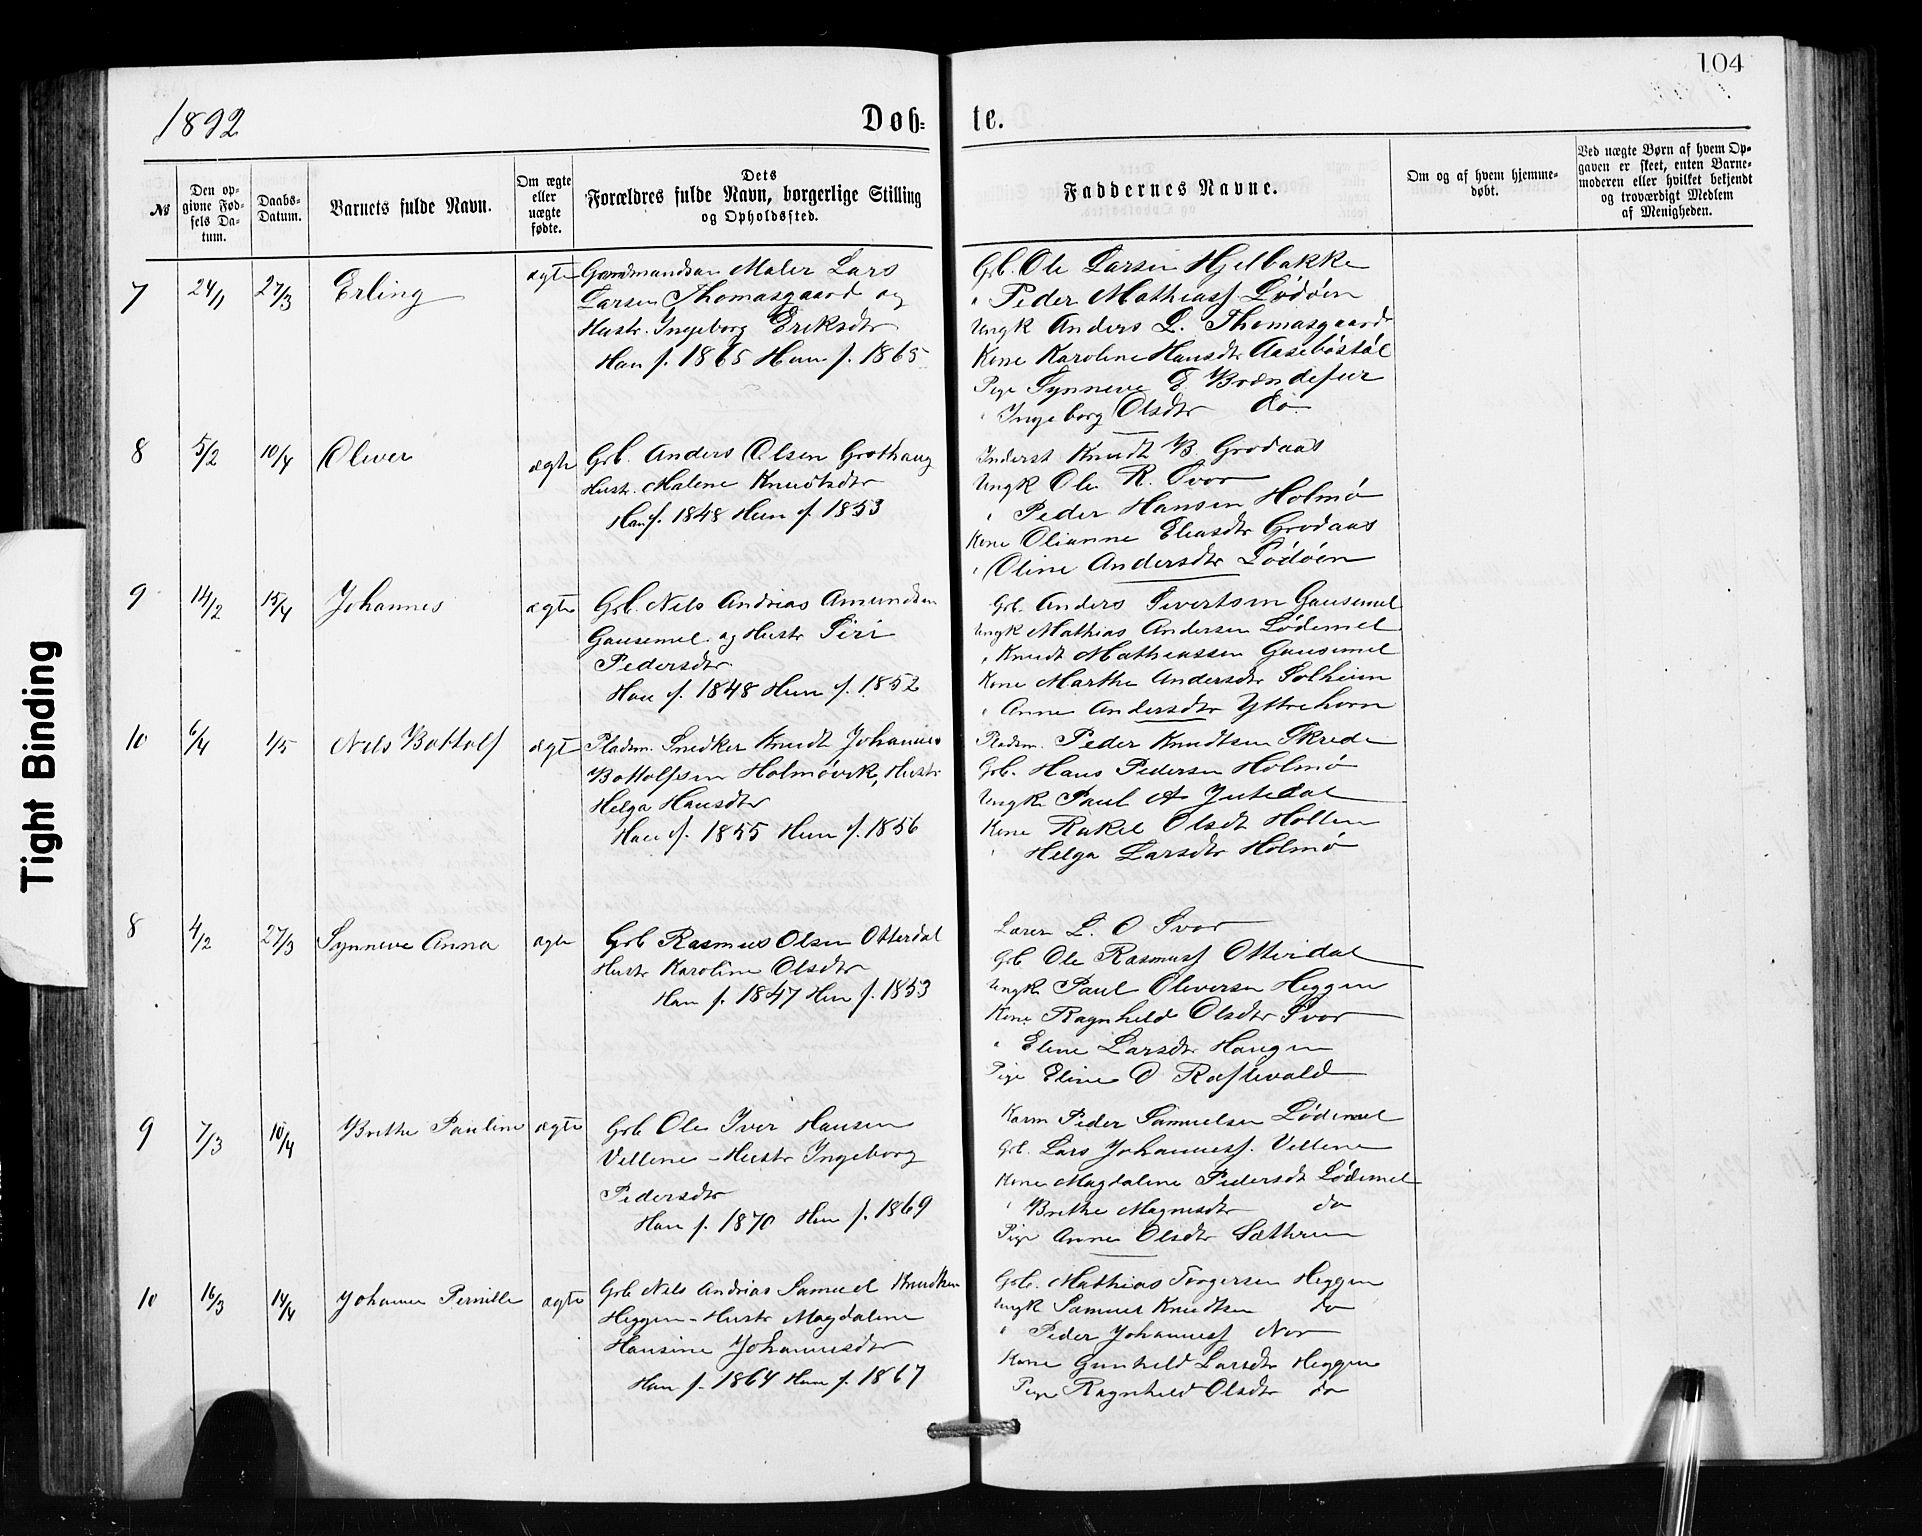 104
1892
Døb-
te.
No
Den op-
givne Fød-
sels Da-
tum.
Daabs-
Datum.
Barnets fulde Navn.
Om ægte
eller
uægte
fødte.
Dets
Forældres fulde Navn, borgerlige Stilling
og Opholdssted.
Faddernes Navne.
Om og af hvem hjemme-
døbt.
Ved uægte Børn af hvem Op-
gaven er skeet, enten Barne-
moderen eller hvilket bekjendt
og troværdigt Medlem
af Menigheden.
7 24/1 27/3 Erling ægte Gaardmandsøn Maler Lars
Larsen Thomasgaard og
Hustr. Ingeborg Eriksdtr
Han f. 1865 Hun f. 1865
Grb. Ole Larsen Hjelbakke
" Peder Mathiass Lødøen
Ungk Anders L. Thomasgaard
Kone Karoline Hansdtr Aasebøstøl
Pige Synneve E. Brændefur
" Ingeborg Olsdtr do
8 5/2 10/4 Oliver ægte Grb. Anders Olsen Grothaug
Hustr. Malene Knudtsdtr
Han f. 1848 Hun f. 1853
Inderst Knudt B. Grodaas
Ungk Ole R. Svor
" Peder Hansen Holmø
Kone Olianne Eliasdtr Grodaas
" Oline Andersdtr Lødøen
9 14/2 15/4 Johannes ægte Grb. Nils Andrias Amundsen
Gausemel og Hustr Siri
Pedersdtr.
Han f. 1848 Hun f. 1852
Grb. Anders Sivertsen Gausemel
Ungk Mathias Andersen Lødemel
" Knudt Mathiassen Gausemel
Kone Marthe Andersdtr Solheim
" Anne Andersdtr Yttrehorn
10 6/4 1/5 Nils Bottolf ægt Pladsm. Snedker Knudt Johannes
Bottolfsen Holmøvik, Hustr
Helga Hansdtr
Han f. 1855 Hun f. 1856
Pladsm. Peder Knudtsen Skrede
Grb. Hans Pedersen Holmø
Ungk Paul A Jutedal
Kone Rakel Olsdt Hollen
" Helga Larsdtr Holmø
8 4/2 27/3 Synneve Anna ægte Grb Rasmus Olsen Otterdal
Hustr Karoline Olsdtr
Han f. 1847 Hun f. 1853
Lærer L. O Svor
Grb Ole Rasmuss Otterdal
Ungk Paul Oliversen Heggen
Kone Ragnhild Olsdtr Svor
" Eline Larsdtr Haugen
Pige Eline O Raftevold
9 7/3 10/4 Brithe Pauline ægte Grb Ole Iver Hansen
Vellene - Hustr Ingeborg
Pedersdtr
Han f. 1870 Hun f. 1869
Kaarm Peder Samuelsen Lødemel
Grb. Lars Johanness. Vellene
Kone Magdalene Pedersdt Lødemel
" Brithe Magnusdtr do
Pige Anne Olsdtr Sæthren
10 16/3 14/4 Johanne Pernille ægte Grb Nils Andrias Samuel Knudtsen
Heggen - Hustr Magdalene
Hansine Johannesdtr
Han f. 1864 Hun f. 1867
Grb. Mathias Torgersen Heggen
Ungk Samuel Knudtsen do
" Peder Johanness Nor
Kone Gunhild Larsdtr Heggen
Pige Ragnhild Olsdtr do
Tight Binding